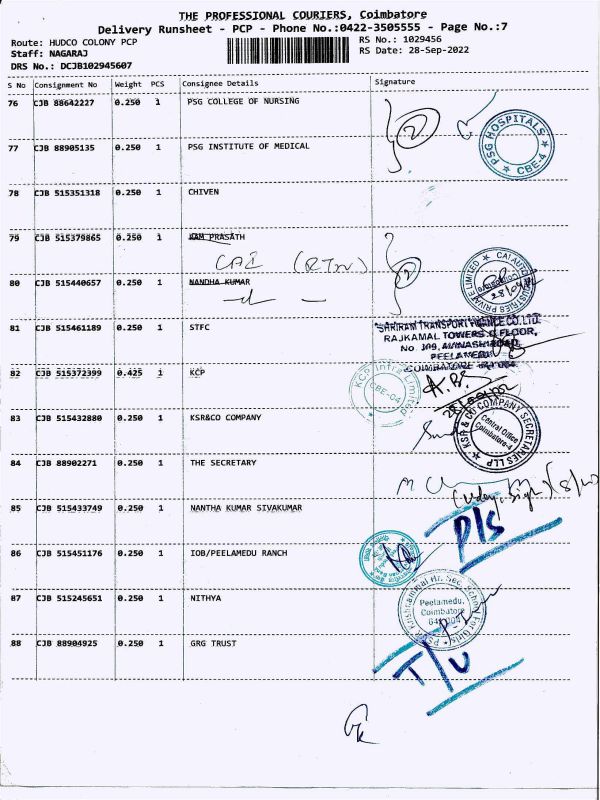 THE PROFESSIONAL COURIERS, Coimbatore
Delivery Runsheet - PCP - Phone No.:0422-3505555 - Page No.:7
Route: HUDCO COLONY PCP
Staff: NAGARAJ
DRS No.: DCJB102945607
RS No.: 1029456
RS Date: 28-Sep-2022
S No Consignment No Weight PCS Consignee Details Signature
76 CJB 88642227 0.250 1 PSG COLLEGE OF NURSING
2
PSG HOSPITALS CBE-4
77 CJB 88905135 0.250 1 PSG INSTITUTE OF MEDICAL
78 CJB 515351318 0.250 1 CHIVEN
79 CJB 515379865 0.250 1 RAM PRASATH
CAI (RTN)
2
80 CJB 515440657 0.250 1 NANDHA KUMAR
81 CJB 515461189 0.250 1 STFC
SHRIRAM TRANSPORT FINANCE CO. LTD.
RAJKAMAL TOWERS, FLOOR,
No. 109, AVINASHI ROAD,
PEELAMEDU
COIMBATORE
82 CJB 515372399 0.425 1 KCP
KCP Infra Limited
CBE-04
83 CJB 515432880 0.250 1 KSR&CO COMPANY
KSR & CO COMPANY SECRETARIES LLP
Central Office
Coimbatore-4
84 CJB 88902271 0.250 1 THE SECRETARY
85 CJB 515433749 0.250 1 NANTHA KUMAR SIVAKUMAR
D/S
86 CJB 515451176 0.250 1 IOB/PEELAMEDU RANCH
87 CJB 515245651 0.250 1 NITHYA
Krishnammal Hr. Sec. School For Girls
Peelamedu,
Coimbatore
88 CJB 88904925 0.250 1 GRG TRUST
T/U